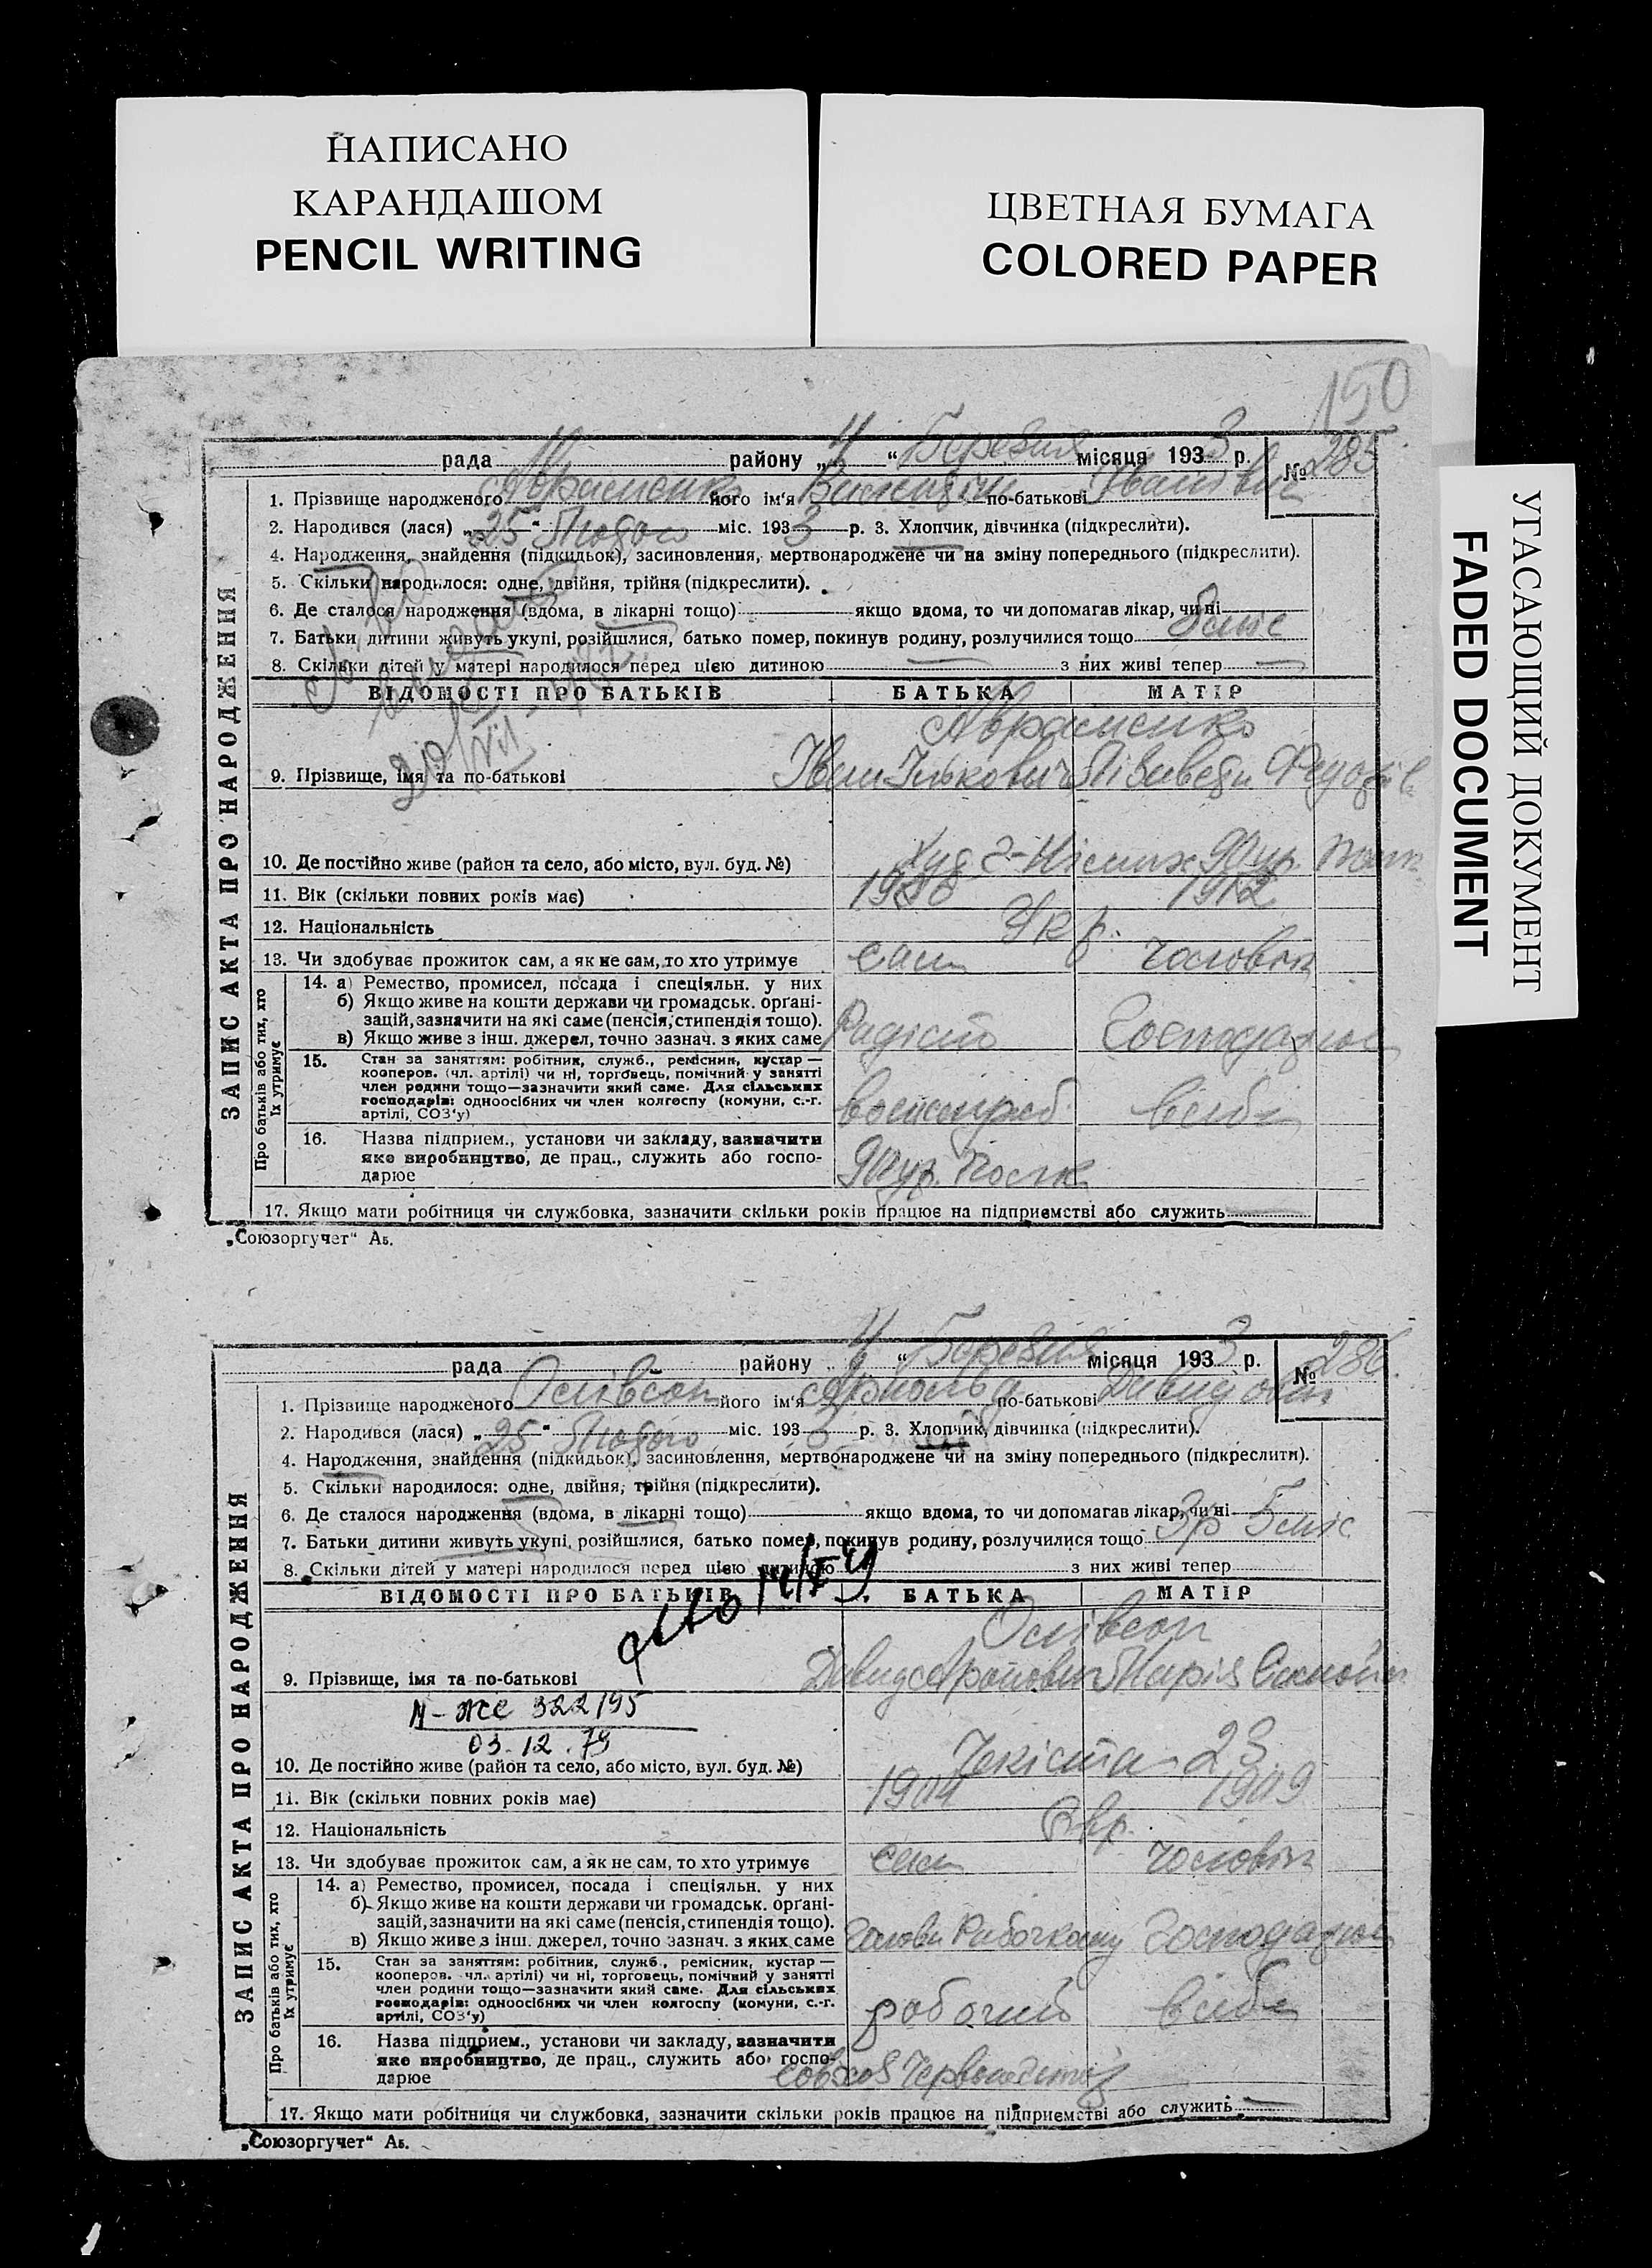 НАПИСАНО
КАРАНДАШОМ
PENCIL WRITING
ЦВЕТНАЯ БУМАГА
COLORED PAPER
УГАСАЮЩИЙ ДОКУМЕНТ
FADED DOCUMENT
150
рада району „4“ Березня місяця 1933 р. № 285
ЗАПИС АКТА ПРО НАРОДЖЕННЯ
1. Прізвище народженого Авраменко його ім'я Валентін по-батькові Іванович
2. Народився (лася) „25“ Лютого міс. 1933 р. 3. Хлопчик, дівчинка (підкреслити).
4. Народження, знайдення (підкидьок), засиновлення, мертвонароджене чи на зміну попереднього (підкреслити).
5. Скільки народилося: одне, двійня, трійня (підкреслити).
6. Де сталося народження (вдома, в лікарні тощо) якщо вдома, то чи допомагав лікар, чи ні
7. Батьки дитини живуть укупі, розійшлися, батько помер, покинув родину, розлучилися тощо 8 міс
8. Скільки дітей у матері народилося перед цією дитиною — з них живі тепер —
ВІДОМОСТІ ПРО БАТЬКІВ БАТЬКА МАТІР
Авраменко
9. Прізвище, імя та по-батькові Іван Ількович Лізавета Федорів
10. Де постійно живе (район та село, або місто, вул. буд. №)
11. Вік (скільки повних років має) 1912
12. Національність Укр.
13. Чи здобуває прожиток сам, а як не сам, то хто утримує сам чоловік
Про батьків або тих, хто їх утримує
14. а) Ремество, промисел, посада і спеціяльн. у них
б) Якщо живе на кошти держави чи громадськ. органі-
зацій, зазначити на які саме (пенсія, стипендія тощо).
в) Якщо живе з інш. джерел, точно зазнач. з яких саме Радіст Господарює
15. Стан за заняттям: робітник, служб., ремісник, кустар —
кооперов. (чл. артілі) чи ні, торговець, помічний у занятті
член родини тощо—зазначити який саме. Для сільських
господарів: одноосібних чи член колгоспу (комуни, с.-г.
артілі, СОЗ'у)
16. Назва підприєм., установи чи закладу, зазначити
яке виробництво, де прац., служить або госпо-
дарює
17. Якщо мати робітниця чи службовка, зазначити скільки років працює на підприємстві або служить
„Союзоргучет“ Аб.
рада району „4“ Березня місяця 1933 р. № 286
ЗАПИС АКТА ПРО НАРОДЖЕННЯ
1. Прізвище народженого Осівсон його ім'я Арнольд по-батькові Давидович
2. Народився (лася) „25“ Лютого міс. 1933 р. 3. Хлопчик, дівчинка (підкреслити).
4. Народження, знайдення (підкидьок), засиновлення, мертвонароджене чи на зміну попереднього (підкреслити).
5. Скільки народилося: одне, двійня, трійня (підкреслити).
6. Де сталося народження (вдома, в лікарні тощо) якщо вдома, то чи допомагав лікар, чи ні
7. Батьки дитини живуть укупі, розійшлися, батько помер, покинув родину, розлучилися тощо 3р 5 міс
8. Скільки дітей у матері народилося перед цією дитиною з них живі тепер
ВІДОМОСТІ ПРО БАТЬКІВ БАТЬКА МАТІР
Осівсон
9. Прізвище, імя та по-батькові Давид Аронович Марія
ЖЕ 322195
03.12.79
10. Де постійно живе (район та село, або місто, вул. буд. №) Чекіста - 23
11. Вік (скільки повних років має) 1904 1909
12. Національність Євр.
13. Чи здобуває прожиток сам, а як не сам, то хто утримує сам чоловік
Про батьків або тих, хто їх утримує
14. а) Ремество, промисел, посада і спеціяльн. у них
б) Якщо живе на кошти держави чи громадськ. органі-
зацій, зазначити на які саме (пенсія, стипендія тощо).
в) Якщо живе з інш. джерел, точно зазнач. з яких саме Голова Рабочкому Господарює
15. Стан за заняттям: робітник, служб., ремісник, кустар —
кооперов. чл. артілі) чи ні, торговець, помічний у занятті
член родини тощо—зазначити який саме. Для сільських
господарів: одноосібних чи член колгоспу (комуни, с.-г.
артілі, СОЗ'у) робочий
16. Назва підприєм., установи чи закладу, зазначити
яке виробництво, де прац., служить або госпо-
дарює совхоз
17. Якщо мати робітниця чи службовка, зазначити скільки років працює на підприємстві або служить —
„Союзоргучет“ Аб.